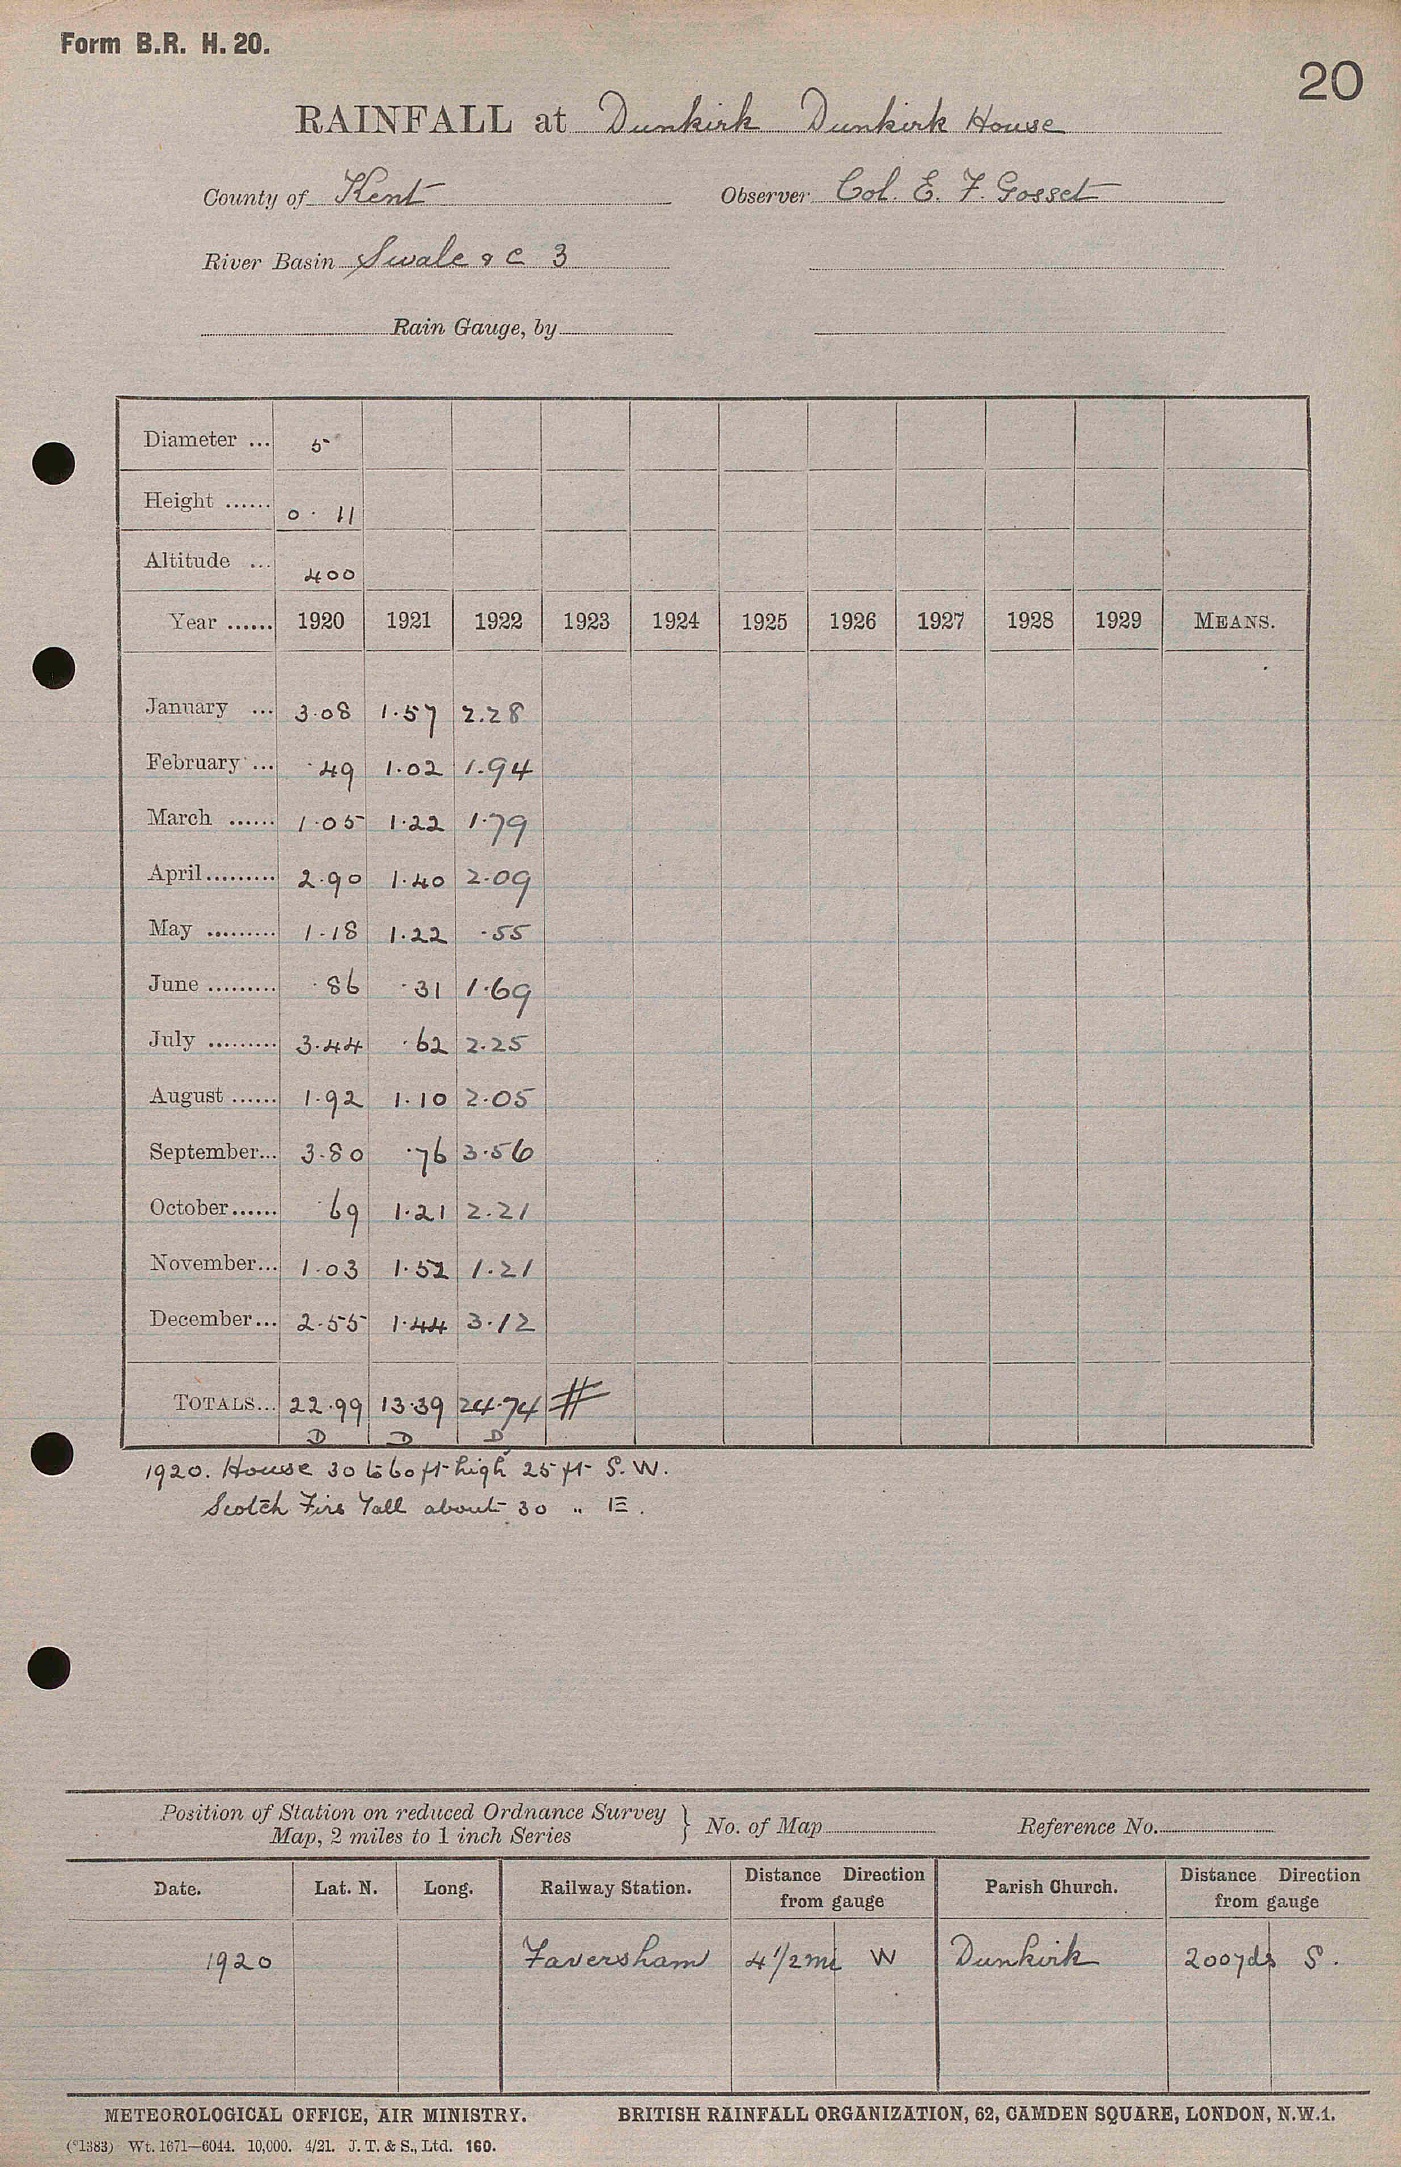 Form B.R. H. 20.
20
RAINFALL at Dunkirk Dunkirk House
County of Kent Observer Col. E. F. Gosset
River Basin Swale & C 3
Rain Gauge, by
Diameter ... 5
Height ...... 0 · 11
Altitude ... 400
Year ...... 1920 1921 1922 1923 1924 1925 1926 1927 1928 1929 MEANS.
January ... 3·08 1·57 2.28
February ... ·49 1·02 1·94
March ...... 1·05 1·22 1·79
April......... 2·90 1·40 2·09
May ......... 1·18 1·22 ·55
June ......... ·86 ·31 1·69
July ......... 3·44 ·62 2·25
August ...... 1·92 1·10 2·05
September... 3·80 ·76 3·56
October...... ·69 1·21 2·21
November... 1·03 1·52 1·21
December... 2·55 1·44 3·12
TOTALS... 22·99 13·39 24·74 #
D D D
1920. House 30 to 60 ft high 25 ft S.W.
Scotch Firs Tall about 30 " E.
Position of Station on reduced Ordnance Survey
Map, 2 miles to 1 inch Series } No. of Map Reference No.
Date. Lat. N. Long. Railway Station. Distance Direction from gauge Parish Church. Distance Direction from gauge
1920 Faversham 4 1/2 mi W Dunkirk 200 yds S.
METEOROLOGICAL OFFICE, AIR MINISTRY. BRITISH RAINFALL ORGANIZATION, 62, CAMDEN SQUARE, LONDON, N.W.1.
(*1383) Wt. 1671—6044. 10,000. 4/21. J. T. & S., Ltd. 160.